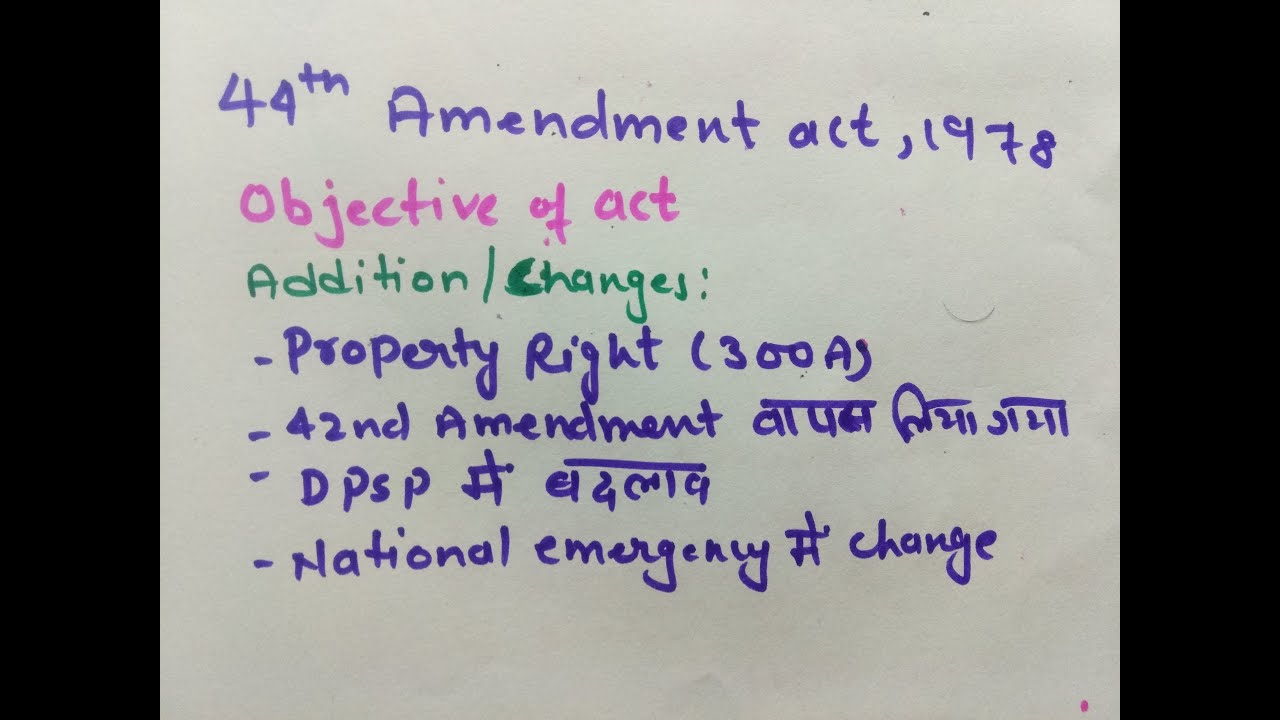 44th Amendment act, 1978
Objective of act
Addition/Changes:
- Property Right (300A)
- 42nd Amendment वापस लिया गया
- DPSP में बदलाव
- National emergency में change